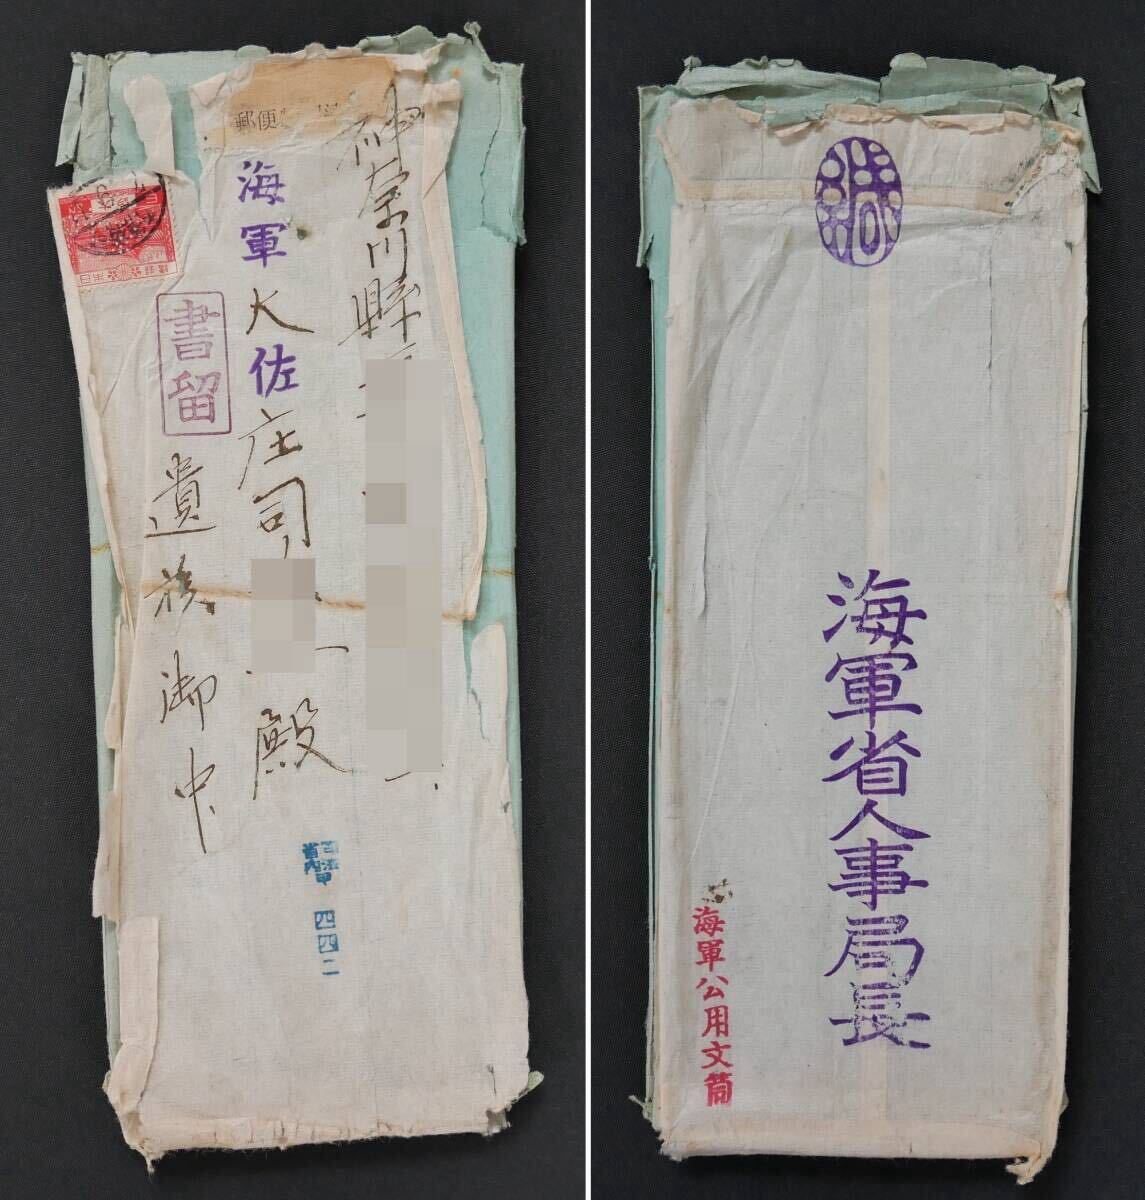 郵便
神奈川縣
海軍大佐庄司
殿
書留
遺族御中
四四二
緘
海軍省人事局長
海軍公用文筒